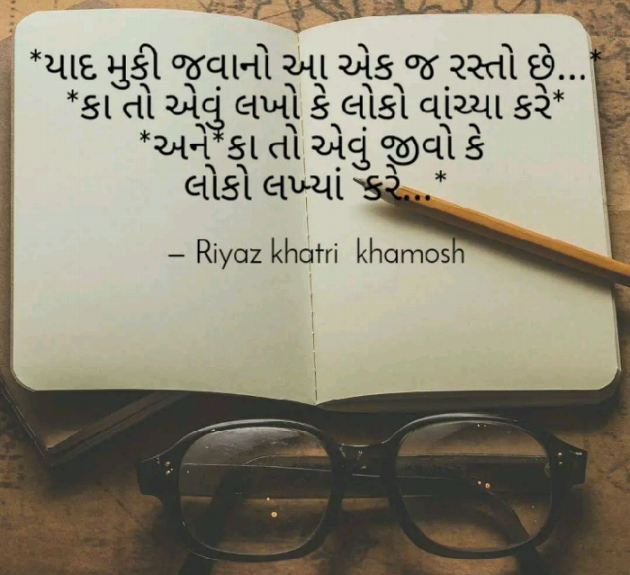 *યાદ મુકી જવાનો આ એક જ રસ્તો છે...*
*કા તો એવું લખો કે લોકો વાંચ્યા કરે*
*અને*કા તો એવું જીવો કે
લોકો લખ્યાં  કરે...*
– Riyaz khatri  khamosh